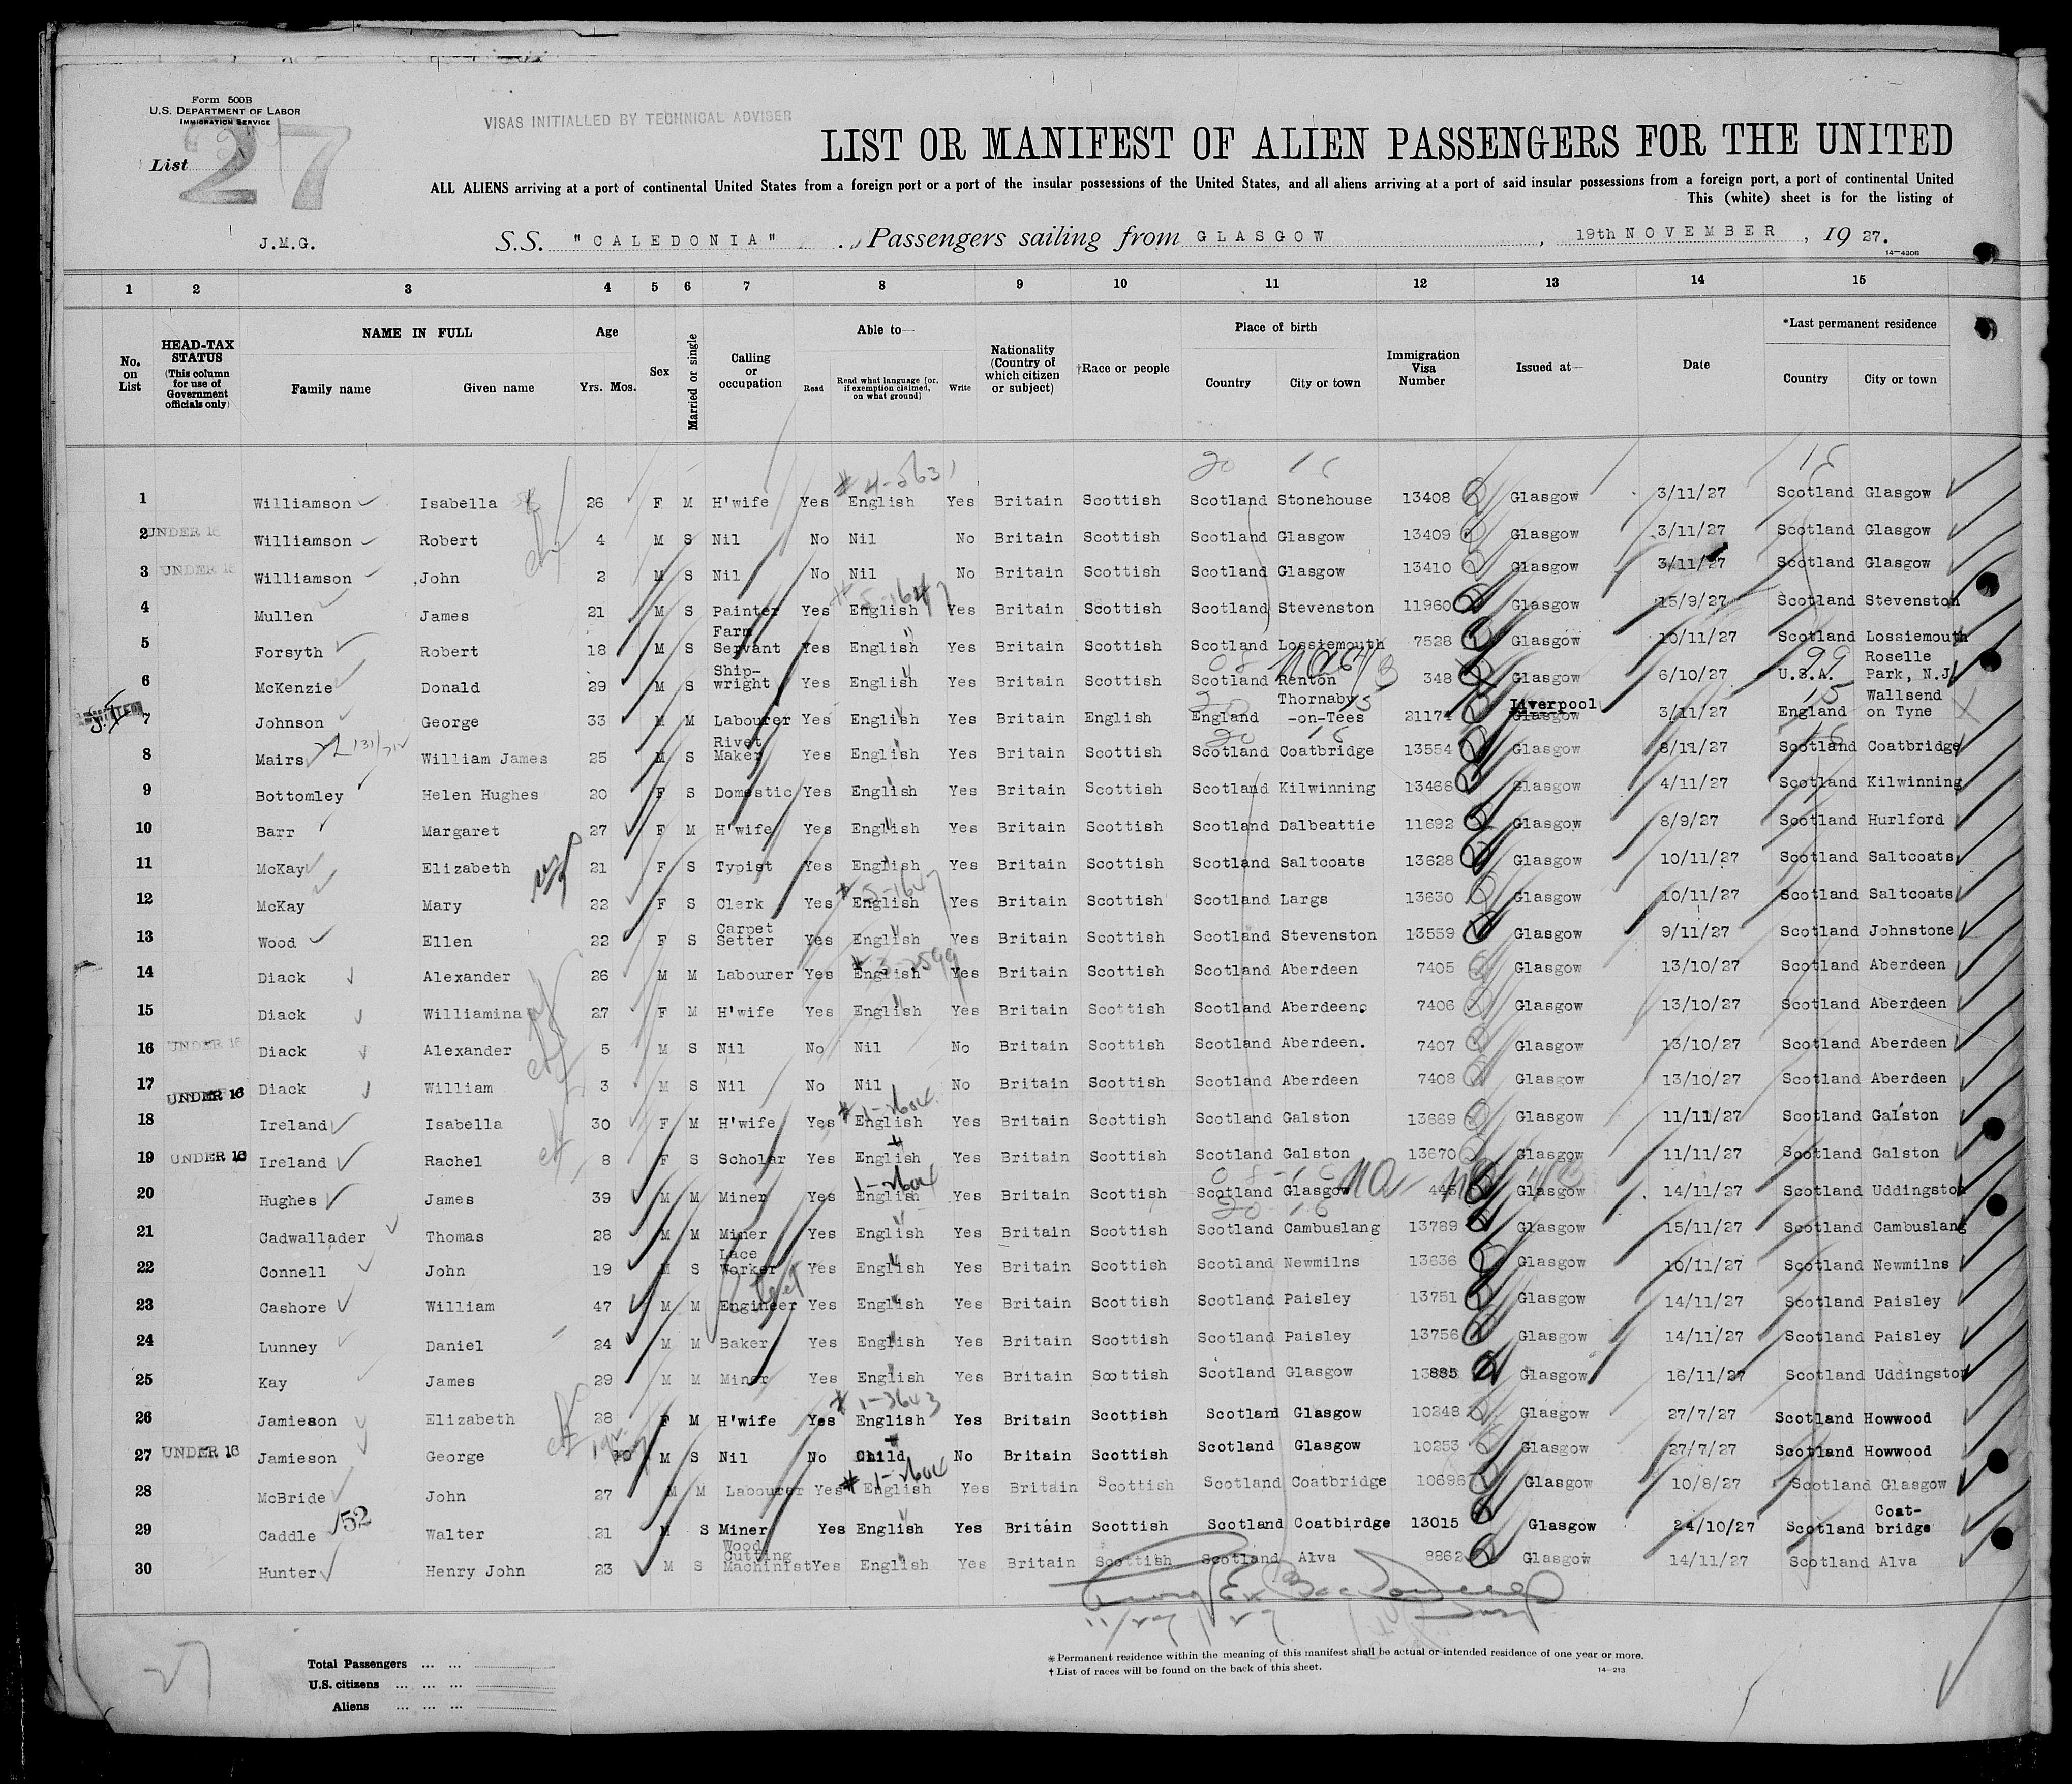 Form 500B
U.S. DEPARTMENT OF LABOR
IMMIGRATION SERVICE
VISAS INITIALLED BY TECHNICAL ADVISER
List 27
LIST OR MANIFEST OF ALIEN PASSENGERS FOR THE UNITED
ALL ALIENS arriving at a port of continental United States from a foreign port or a port of the insular possessions of the United States, and all aliens arriving at a port of said insular possessions from a foreign port, a port of continental United
This (white) sheet is for the listing of
J.M.G. S.S. "CALEDONIA" Passengers sailing from GLASGOW, 19th NOVEMBER, 19 27.
14-430B
1 2 3 4 5 6 7 8 9 10 11 12 13 14 15
No. on List
HEAD-TAX STATUS (This column for use of Government officials only)
NAME IN FULL
Family name Given name
Age
Yrs. Mos.
Sex
Married or single
Calling or occupation
Able to—
Read Read what language [or, if exemption claimed, on what ground] Write
Nationality (Country of which citizen or subject)
†Race or people
Place of birth
Country City or town
Immigration Visa Number
Issued at—
Date
*Last permanent residence
Country City or town
20 16 16
# 4-563
1 Williamson Isabella 26 F M H'wife Yes English Yes Britain Scottish Scotland Stonehouse 13408 Glasgow 3/11/27 Scotland Glasgow
2 UNDER 16 Williamson Robert 4 M S Nil No Nil No Britain Scottish Scotland Glasgow 13409 Glasgow 3/11/27 Scotland Glasgow
3 UNDER 16 Williamson John 2 M S Nil No Nil No Britain Scottish Scotland Glasgow 13410 Glasgow 3/11/27 Scotland Glasgow
# 5-1647
4 Mullen James 21 M S Painter Yes English Yes Britain Scottish Scotland Stevenston 11960 Glasgow 15/9/27 Scotland Stevenston
5 Forsyth Robert 18 M S Farm Servant Yes English Yes Britain Scottish Scotland Lossiemouth 7528 Glasgow 10/11/27 Scotland Lossiemouth
6 McKenzie Donald 29 M S Ship-wright Yes English Yes Britain Scottish Scotland Renton 348 Glasgow 6/10/27 U.S.A. Roselle Park, N.J.
7 Johnson George 33 M M Labourer Yes English Yes Britain English England Thornaby-on-Tees 21174 Liverpool Glasgow 3/11/27 England Wallsend on Tyne
8 Mairs William James 25 M S Rivet Maker Yes English Yes Britain Scottish Scotland Coatbridge 13554 Glasgow 8/11/27 Scotland Coatbridge
9 Bottomley Helen Hughes 20 F S Domestic Yes English Yes Britain Scottish Scotland Kilwinning 13466 Glasgow 4/11/27 Scotland Kilwinning
10 Barr Margaret 27 F M H'wife Yes English Yes Britain Scottish Scotland Dalbeattie 11692 Glasgow 8/9/27 Scotland Hurlford
11 McKay Elizabeth 21 F S Typist Yes English Yes Britain Scottish Scotland Saltcoats 13628 Glasgow 10/11/27 Scotland Saltcoats
# 5-1647
12 McKay Mary 22 F S Clerk Yes English Yes Britain Scottish Scotland Largs 13630 Glasgow 10/11/27 Scotland Saltcoats
13 Wood Ellen 22 F S Carpet Setter Yes English Yes Britain Scottish Scotland Stevenston 13559 Glasgow 9/11/27 Scotland Johnstone
# 3-2599
14 Diack Alexander 26 M M Labourer Yes English Yes Britain Scottish Scotland Aberdeen 7405 Glasgow 13/10/27 Scotland Aberdeen
15 Diack Williamina 27 F M H'wife Yes English Yes Britain Scottish Scotland Aberdeen. 7406 Glasgow 13/10/27 Scotland Aberdeen
16 UNDER 16 Diack Alexander 5 M S Nil No Nil No Britain Scottish Scotland Aberdeen. 7407 Glasgow 13/10/27 Scotland Aberdeen
17 UNDER 16 Diack William 3 M S Nil No Nil No Britain Scottish Scotland Aberdeen 7408 Glasgow 13/10/27 Scotland Aberdeen
# 1-2604
18 Ireland Isabella 30 F M H'wife Yes English Yes Britain Scottish Scotland Galston 13669 Glasgow 11/11/27 Scotland Galston
19 UNDER 16 Ireland Rachel 8 F S Scholar Yes English Yes Britain Scottish Scotland Galston 13670 Glasgow 11/11/27 Scotland Galston
1-2604
20 Hughes James 39 M M Miner Yes English Yes Britain Scottish Scotland Glasgow Glasgow 14/11/27 Scotland Uddingston
20 16
21 Cadwallader Thomas 28 M M Miner Yes English Yes Britain Scottish Scotland Cambuslang 13789 Glasgow 15/11/27 Scotland Cambuslang
22 Connell John 19 M S Lace Worker Yes English Yes Britain Scottish Scotland Newmilns 13636 Glasgow 10/11/27 Scotland Newmilns
23 Cashore William 47 M M Engineer Yes English Yes Britain Scottish Scotland Paisley 13751 Glasgow 14/11/27 Scotland Paisley
24 Lunney Daniel 24 M M Baker Yes English Yes Britain Scottish Scotland Paisley 13756 Glasgow 14/11/27 Scotland Paisley
25 Kay James 29 M M Miner Yes English Yes Britain Scottish Scotland Glasgow 13885 Glasgow 16/11/27 Scotland Uddingston
# 1-3643
26 Jamieson Elizabeth 28 F M H'wife Yes English Yes Britain Scottish Scotland Glasgow 10248 Glasgow 27/7/27 Scotland Howwood
27 UNDER 16 Jamieson George 10 M S Nil No Child No Britain Scottish Scotland Glasgow 10253 Glasgow 27/7/27 Scotland Howwood
# 1-2604
28 McBride John 27 M M Labourer Yes English Yes Britain Scottish Scotland Coatbridge 10696 Glasgow 10/8/27 Scotland Glasgow
29 Caddle 52 Walter 21 M S Miner Yes English Yes Britain Scottish Scotland Coatbirdge 13015 Glasgow 24/10/27 Scotland Coat-bridge
30 Hunter Henry John 23 M S Wood Cutting Machinist Yes English Yes Britain Scottish Scotland Alva 8862 Glasgow 14/11/27 Scotland Alva
27
Total Passengers ... ...
U.S. citizens ... ... ...
Aliens ... ... ...
* Permanent residence within the meaning of this manifest shall be actual or intended residence of one year or more.
† List of races will be found on the back of this sheet.
14-213